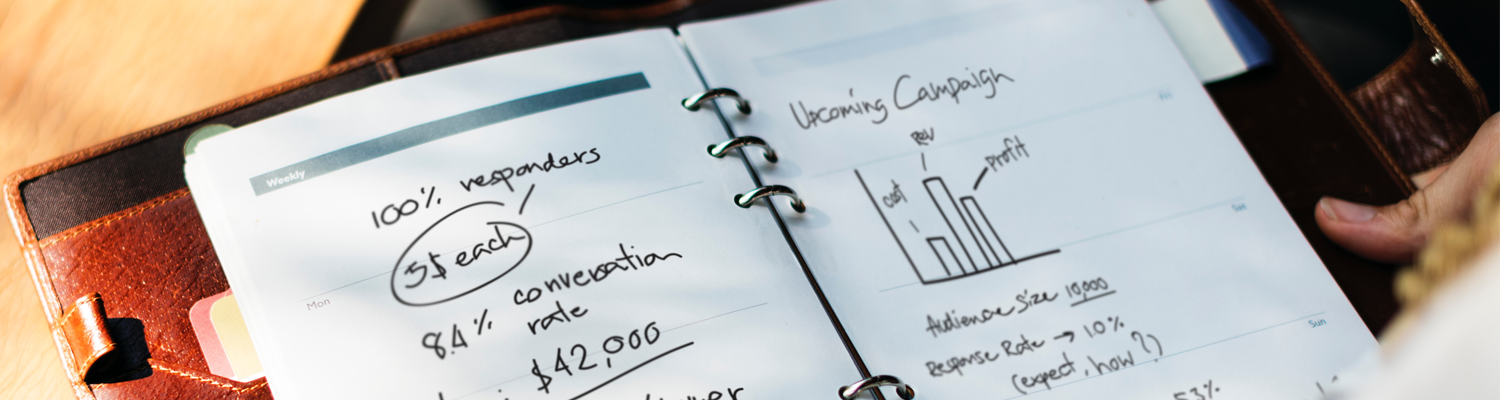 Weekly
100% responders
5$ each
Mon
8.4% conversation
rate
$42,000
Upcoming Campaign
Fri
Rev
Profit
Cost
Sat
Audience Size 10,000
Response Rate → 10%
(expect, how?)
Sun
53%